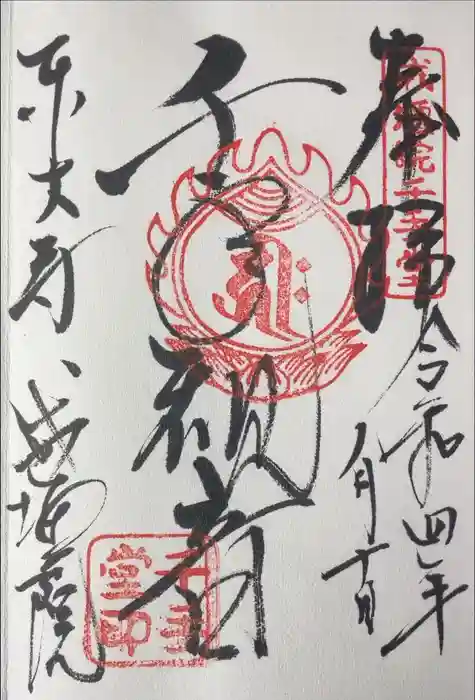 奉拝
戒壇院千手堂
令和四年
八月十日
千手観音
千手堂印
東大寺
戒壇院